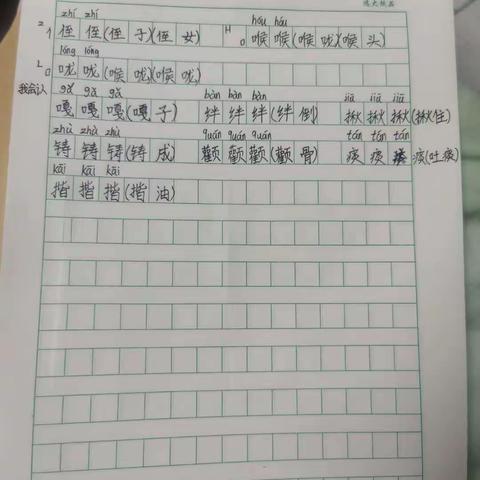 远大纸品
zhí zhí hóu hóu
Z 侄 侄 (侄 子)(侄 女) H 喉 喉 (喉 咙)(喉 头)
lóng lóng
L 咙 咙 (喉 咙)(喉 咙)
gǎ gǎ gǎ bàn bàn bàn jiū jiū jiū
我会认 嘎 嘎 嘎 (嘎 子) 绊 绊 绊 (绊 倒) 揪 揪 揪 (揪 住)
zhù zhù zhù quán quán quán tán tán tán
铸 铸 铸 (铸 成) 颧 颧 颧 (颧 骨) 痰 痰 痰 (吐 痰)
kāi kāi kāi
揩 揩 揩 (揩 油)